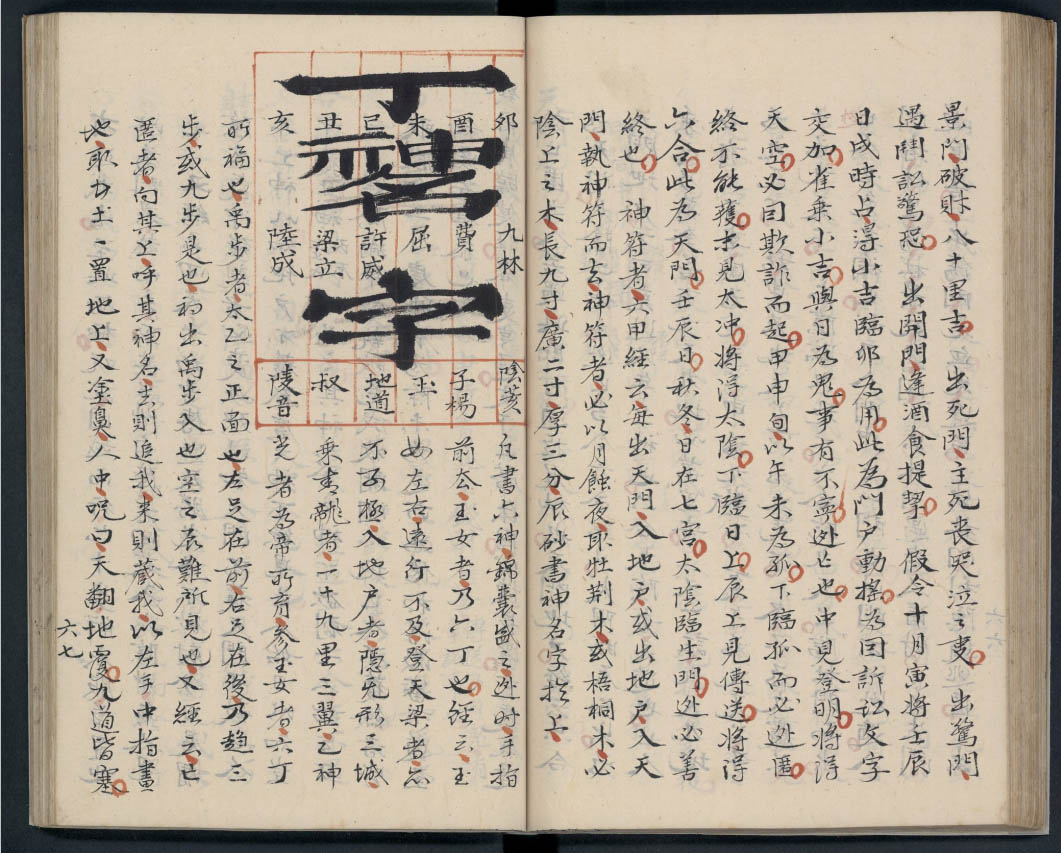 景門破財八十里吉出死門主死丧哭泣之叓出驚門
遇鬪訟驚恐出開門逢酒食提挈假令十月寅將壬辰
日戌時占淂小吉臨卯為用此為門户動摇為曰訢訟文字
交加雀乗小吉與日為鬼事有不寧迯亡也中見登明將淂
天空必曰欺詐而起甲申旬以午未為孤下臨孤而必迯匿
終不能獲末見太冲將淂太陰下臨日上辰上見傳送將淂
六合此為天門壬辰日秋冬日在七宫太陰臨生門迯必善
終也神符者六甲經云每出天門入地户或出地户入天
門執神符而去神符者必以月蝕夜取牡荆木或梧桐木必
陰上之木長九寸廣二寸厚三分辰砂書神名字扵上
丁䰠字
卯 九林 陰黄 凡書六神錦囊盛之迯时手指
酉 費 子楊 前公玉女者乃六丁也經云玉
未 屈 玉 女左右速行不及登天梁者
巳 許咸 地道 不可極入地户者隱死形三城
丑 梁立 叔 乗青龍者一十九里三翼乙神
亥 陸成 陵音 光者為帝所育参玉女者六丁
所福也禹步者太乙之正面也左足在前右足在後乃趋三
步或九步是也初出禹步入也室之辰難所見也又經云亡
匿者向其上呼其神名去則追我来則蔵我以左手中指畫
地取方土一置地上又塗鼻人中呪曰天翻地覆九道皆塞
六七